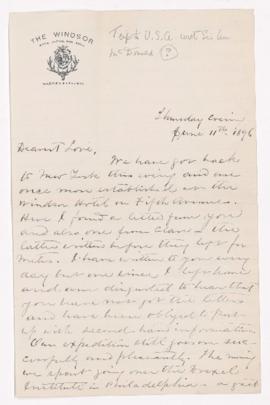 THE WINDSOR
McDonald ?
Thursday Evening
June 11th 1896
Dearest Love,
We have got back
to New York this evening and are
once more established in the
Windsor Hotel on Fifth Avenue.
Here I found a letter from you
and also one from Clare - the
latter written before they left for
Metis. I have written to you every
day but one since I left home
and am disgusted to hear that
you have not got the letters
and have been obliged to put
up with second hand information
Our expedition still goes on suc-
cessfully and pleasantly. The morning
we spent going over the Drexel
Institute in Philadelphia - a gift